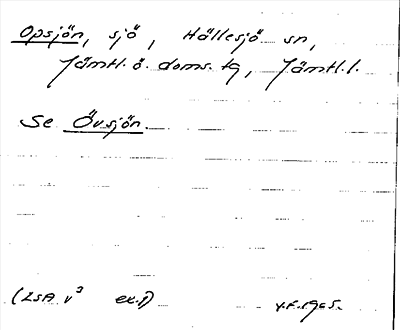 Opsjön, sjö, Hällesjö sn,
Jämtl. ö. doms. tg, Jämtl. l.
Se Övsjön.
(LSA V³ ex. 1) V.F. 1965.